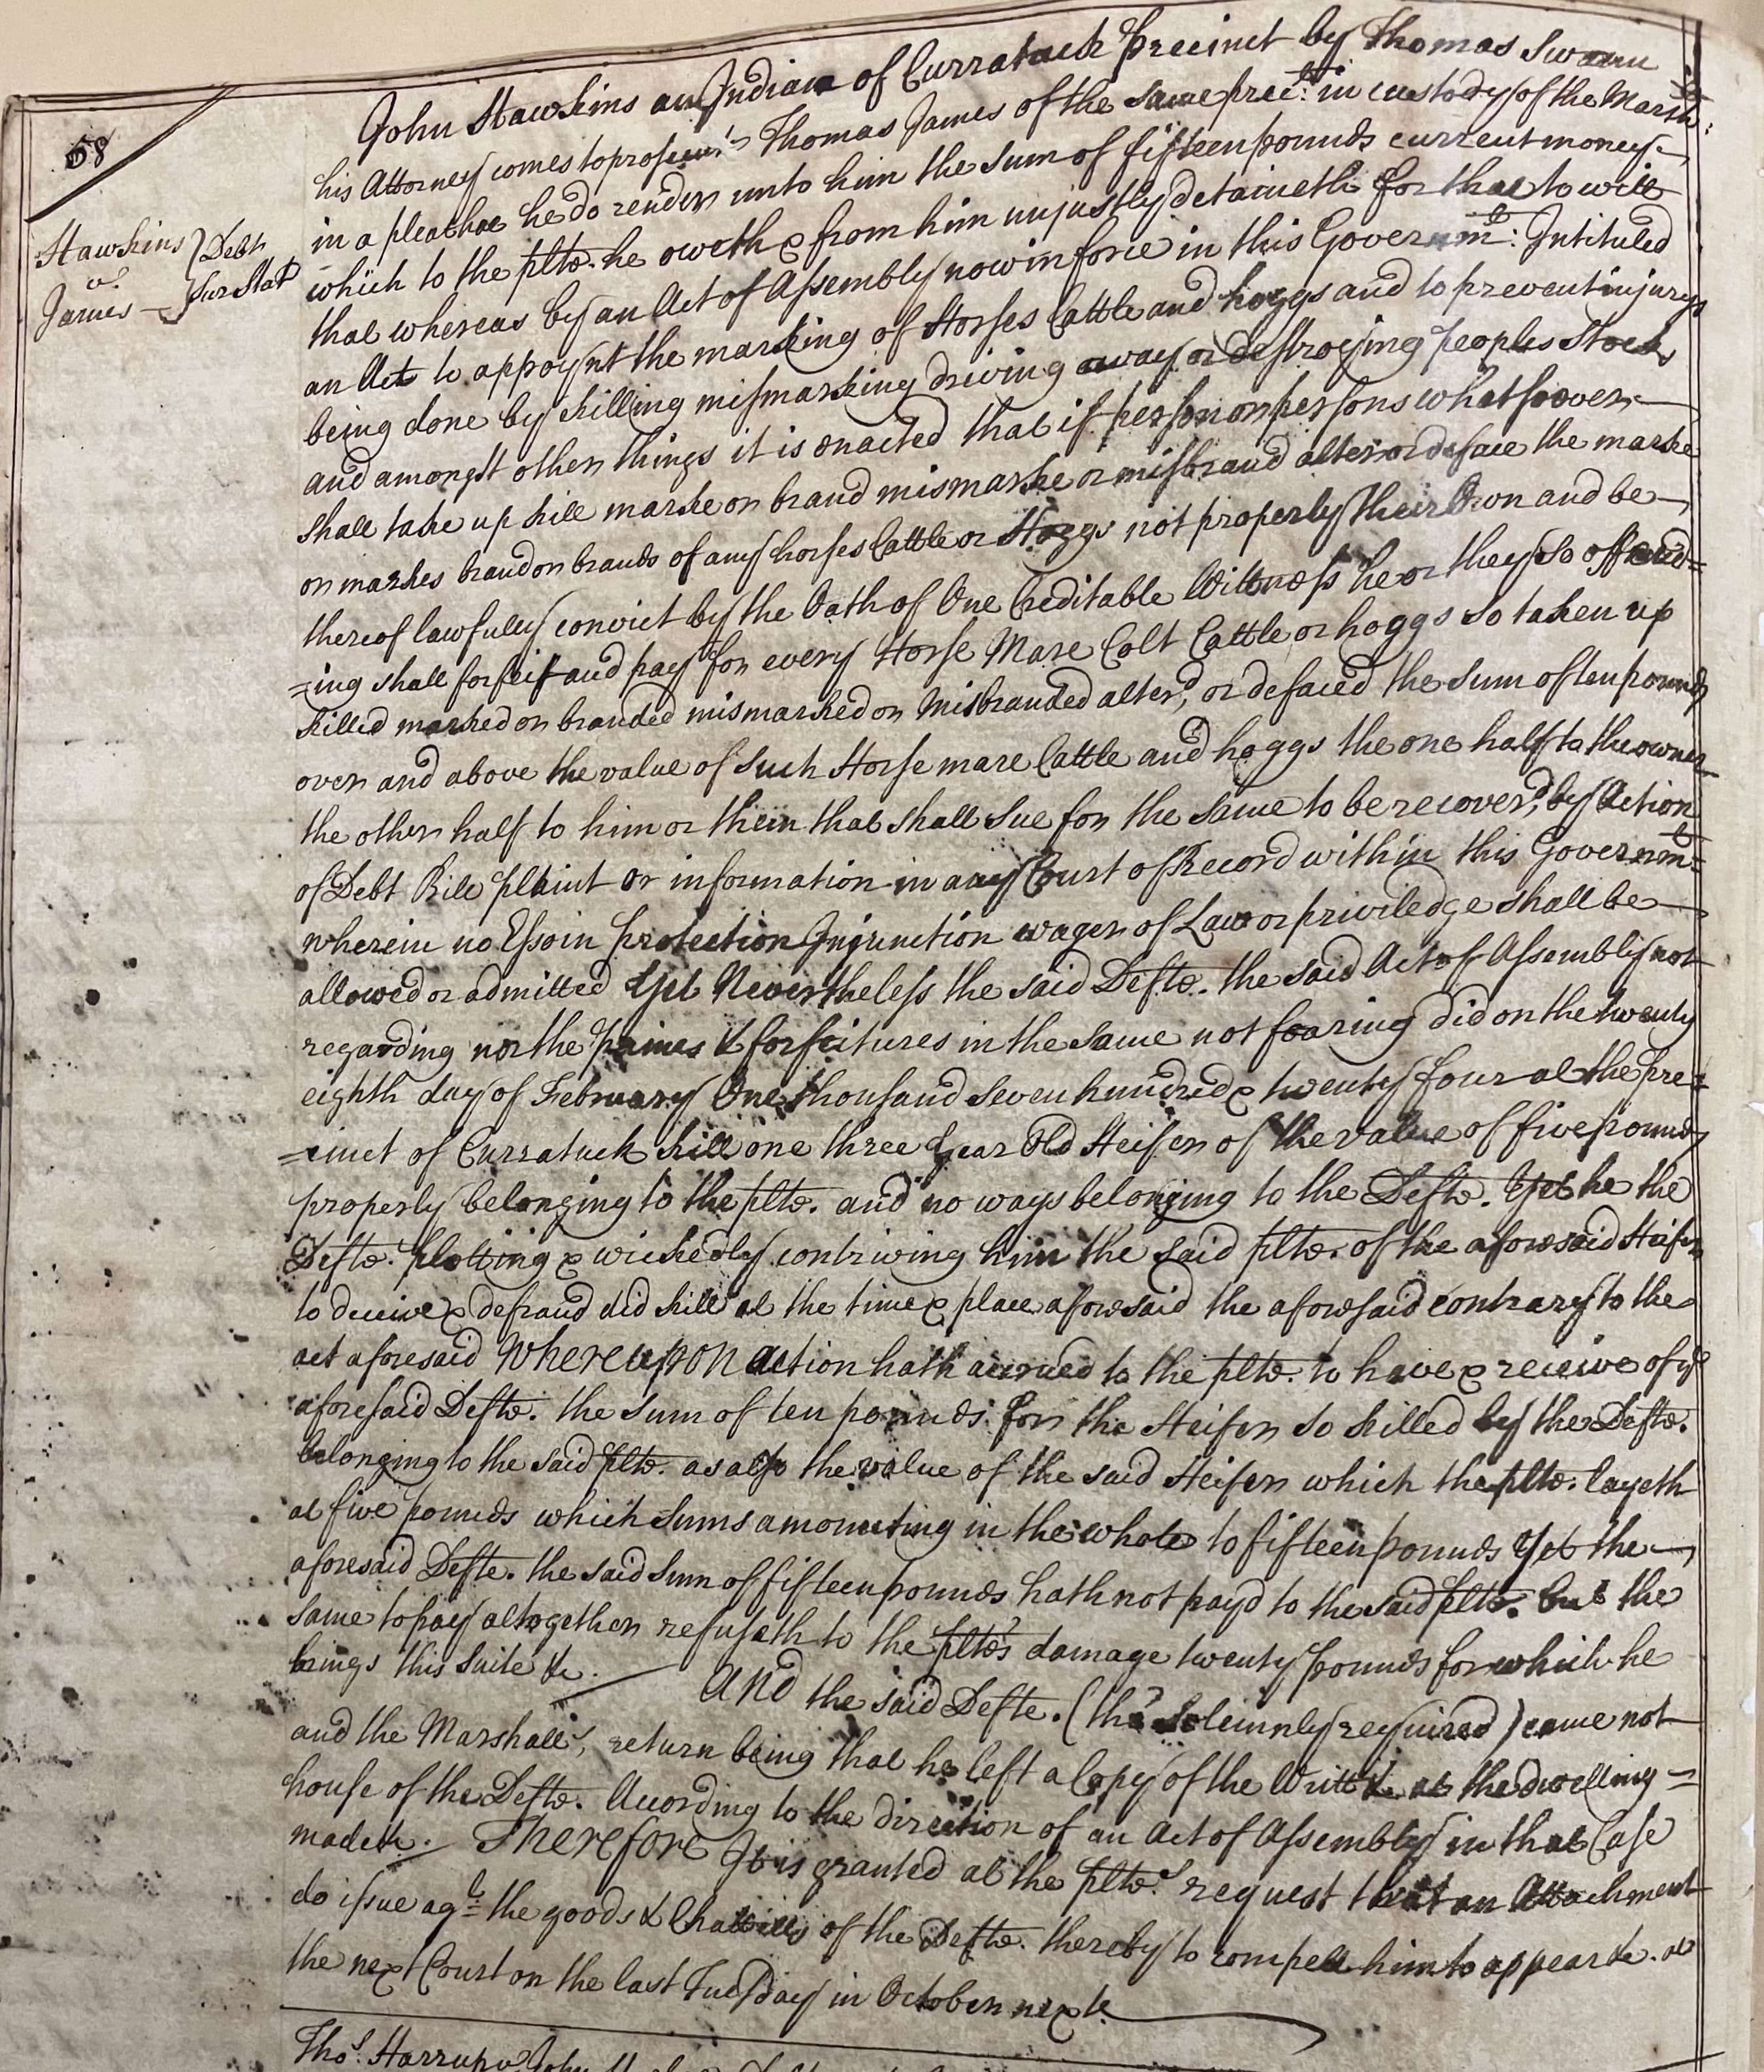 58
Hawkins
vs.
James
Debt
Sur Stat
John Hawkins an Indian of Curratuck Precinct by Thomas Swann
his Attorney comes to prosecute Thomas James of the same prect. in custody of the Marsh:
in a plea that he do render unto him the sum of fifteen pounds current money
which to the plte. he oweth & from him unjustly detaineth for that to witt
that whereas by an Act of Assembly now in force in this Governmt: Intituled
an Act to appoynt the marking of Horses Cattle and hoggs and to prevent injurys
being done by killing mismarking driving away or destroying peoples Stocks
and amongst other things it is enacted that if person or persons whatsoever
shall take up kill marke or brand mismarke or misbrand alter or deface the marke
or markes brand or brands of any horses Cattle or Hoggs not properly their Own and be
thereof lawfully convict by the Oath of One Creditable Wittness he or they so offend=
=ing shall forfeit and pay for every Horse Mare Colt Cattle or hoggs so taken up
killed marked or branded mismarked or Misbranded alter'd, or defaced the sum of ten pounds
over and above the value of such Horse mare Cattle and hoggs the one half to the owner
the other half to him or them that shall sue for the same to be recover'd, by Action
of Debt Bill plaint or information in any Court of Record within this Governmt=
wherein no Essoin protection Injunction wager of Law or priviledge shall be
allowed or admitted Yet Nevertheless the said Defte. the said Act of Assembly not
regarding nor the paines & forfeitures in the same not fearing did on the twenty
eighth day of February One thousand seven hundred & twenty four at the pre=
=cinct of Curratuck kill one three Year Old Heifer of the value of five pounds
properly belonging to the plte. and no ways belonging to the Defte. Yet he the
Defte. plotting & wickedly contriving him the said plte. of the aforesaid Heifer
to deceive & defraud did kill at the time & place aforesaid the aforesaid contrary to the
act aforesaid Whereupon action hath accrued to the plte. to have & receive of ye
aforesaid Defte. the sum of ten pounds for the Heifer so killed by the Defte.
belonging to the said plte. as also the value of the said Heifer which the plte. layeth
at five pounds which sums amounting in the whole to fifteen pounds Yet the
aforesaid Defte. the said sum of fifteen pounds hath not payd to the said plte. but the
same to pay altogether refuseth to the pltes damage twenty pounds for which he
brings this suite &c. And the said Defte. (tho' solemnly required) came not
and the Marshall's, return being that he left a Copy of the Writt &c at the dwelling=
house of the Defte. According to the direction of an Act of Assembly in that Case
made &c. Therefore It is granted at the pltes. request that an Attachment
do issue agt= the goods & Chattells of the Defte. thereby to compell him to appear &c. at
the next Court on the last Tuesday in October next.
Thos. Harrup vs John